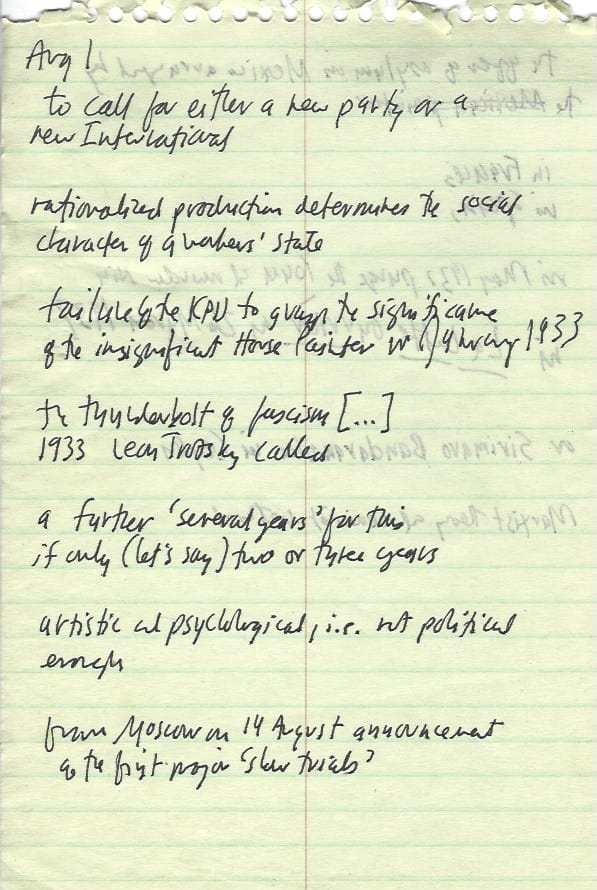 Aug 1
to call for either a new party or a
new International
rationalized production determines the social
character of a workers' state
failure of the KPD to grasp the significance
of the insignificant House Painter in January 1933
the thunderbolt of fascism [...]
1933 Leon Trotsky called
a further 'several years' for this
if only (let's say) two or three years
artistic and psychological, i.e. not political
enough
from Moscow on 14 August announcement
of the first major 'show trials'